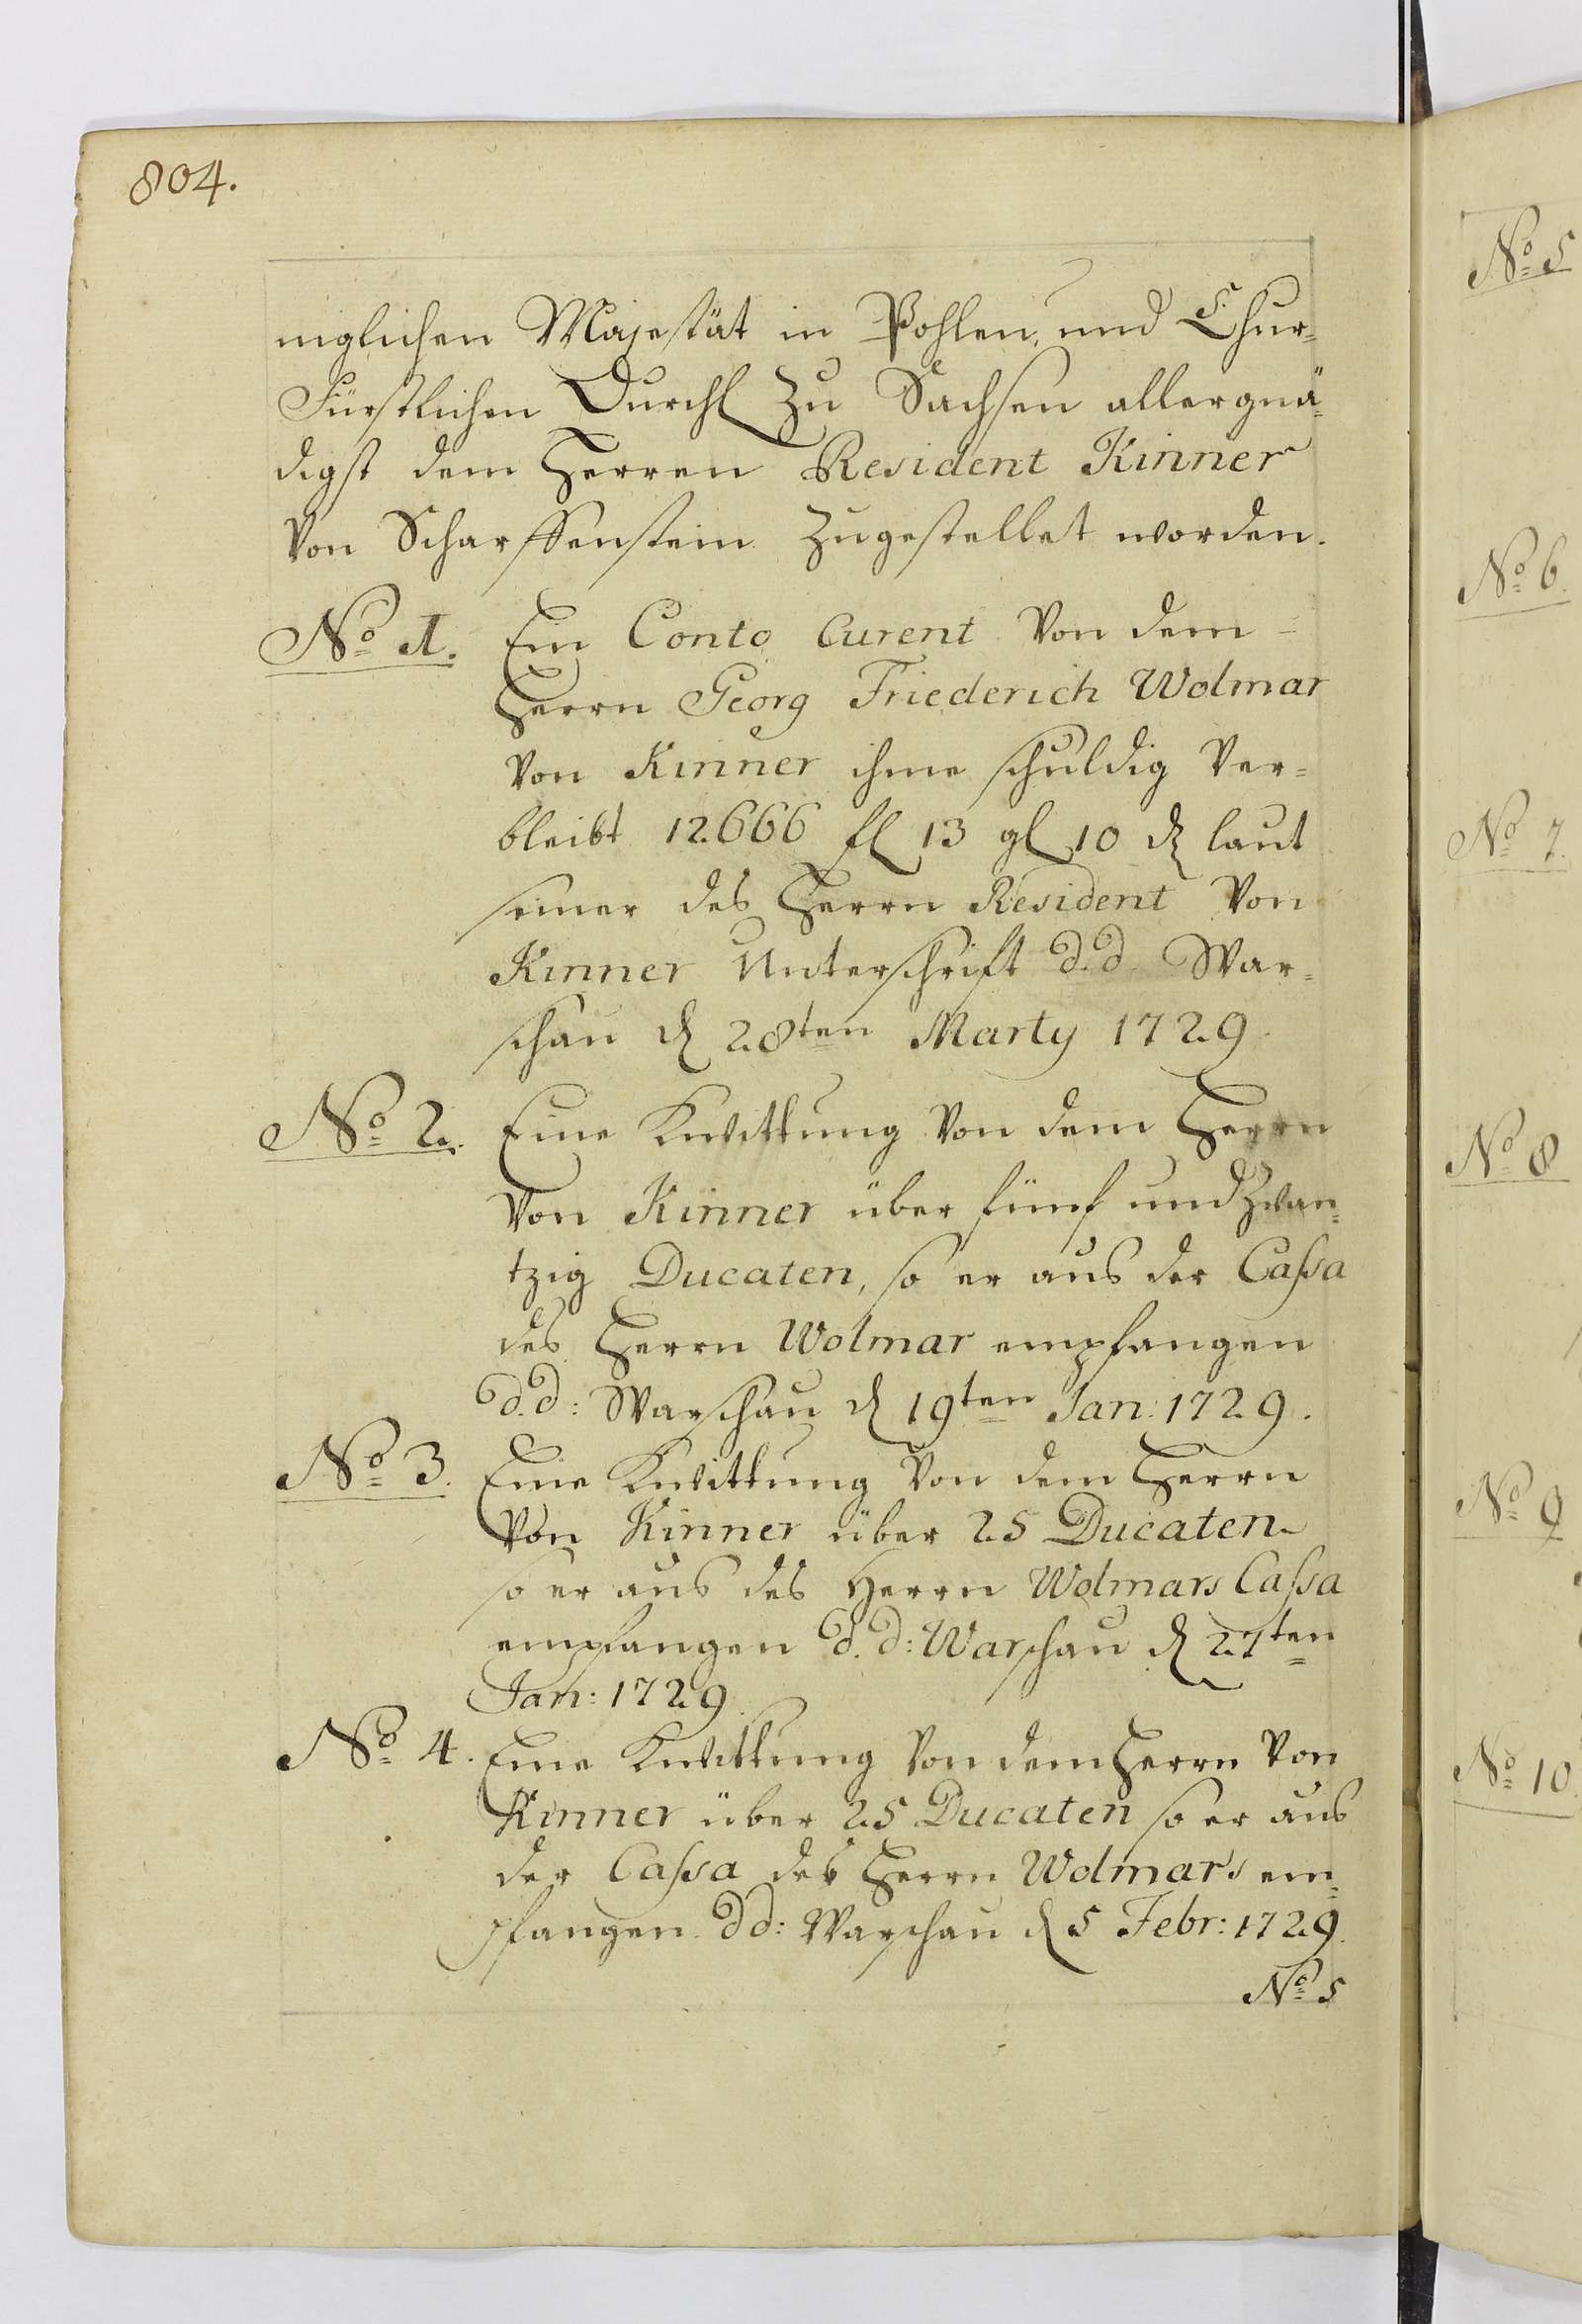 804.
niglichen Majestät in Pohlen, und Chur-
Fürstlichen Durchl zu Sachsen allergnä-
digst dem Herren Resident Kinner
von Scharffenstein zugestellet worden.
No 1. Ein Conto Curent von dem
Herrn Georg Friederich Wolmar
von Kinner ihme schuldig ver=
bleibt 12666 fl 13 gl 10 ₰ laut
seiner des Herrn Resident von
Kinner Unterschrift d.d. War=
schau d 28ten Marty 1729.
No 2. Eine Kwittung von dem Herrn
von Kinner über fünf und zwan=
tzig Ducaten, so er aus der Cassa
des Herrn Wolmar empfangen
d.d: Warschau d 19ten Jan: 1729.
No 3. Eine Kwittung von dem Herrn
von Kinner über 25 Ducaten
so er aus des Herrn Wolmars Cassa
empfangen d.d: Warschau d 27ten
Jan: 1729.
No 4. Eine Kwittung von dem Herrn von
Kinner über 25 Ducaten so er aus
der Cassa des Herrn Wolmars em=
pfangen dd: Warschau d 5 Febr: 1729.
No 5
No 5
No 6.
No 7.
No 8
No 9
No 10.